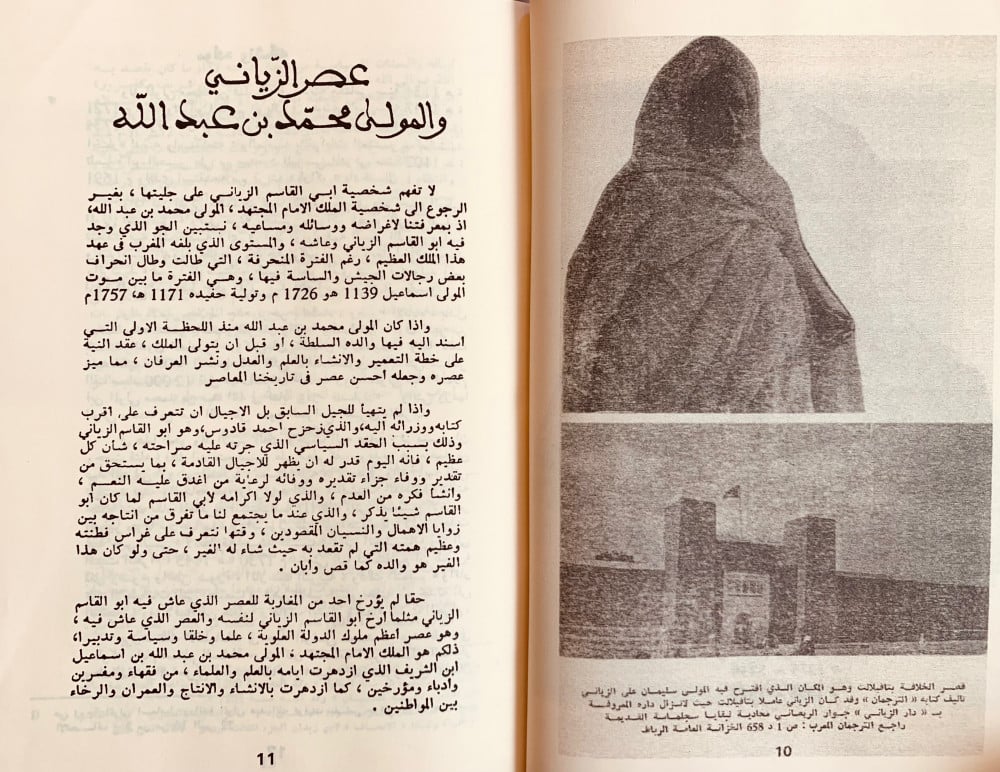 قصر الخلافة بتافيلالت وهو المكان الذي اقترح فيه المولى سليمان على الزياني
تاليف كتابه « الترجمان » وقد كان الزياني عاملا بتافيلالت حيث لانزال داره المعروفة
بـ « دار الزياني » جوار الريصاني محاذية لبقايا سجلماسة القديمة
راجع الترجمان المعرب : ص 1 د 658 الخزانة العامة الرباط
10
عصر الزّياني
والمولى محمّد بن عبد اللّه
لا تفهم شخصية ابي القاسم الزياني على جليتها ، بغير
الرجوع الى شخصية الملك الامام المجتهد ، المولى محمد بن عبد الله،
اذ بمعرفتنا لاغراضه ووسائله ومساعيه ، نستبين الجو الذي وجد
فيه ابو القاسم الزياني وعاشه ، والمستوى الذي بلغه المغرب في عهد
هذا الملك العظيم ، رغم الفترة المنحرفة ، التي طالت وطال انحراف
بعض رجالات الجيش والساسة فيها ، وهي الفترة ما بين موت
المولى اسماعيل 1139 هو 1726 م وتولية حفيده 1171 هـ، 1757م
واذا كان المولى محمد بن عبد الله منذ اللحظة الاولى التي
اسند اليه فيها والده السلطة ، او قبل ان يتولى الملك ، عقد النية
على خطة التعمير والانشاء بالعلم والعدل ونشر العرفان ، مما ميز
عصره وجعله احسن عصر في تاريخنا المعاصر
واذا لم يتهيأ للجيل السابق بل الاجيال ان تتعرف على اقرب
كتابه ووزرائه اليه، والذي زحزح احمد قادوس، وهو ابو القاسم الزياني
وذلك بسبب الحقد السياسي الذي جرته عليه صراحته ، شأن كل
عظيم ، فانه اليوم قدر له ان يظهر للاجيال القادمة ، بما يستحق من
تقدير ووفاء جزاء تقديره ووفائه لرعاية من اغدق عليه النعم ،
وانشأ فكره من العدم ، والذي لولا اكرامه لابي القاسم لما كان ابو
القاسم شيئا يذكر ، والذي عند ما يجتمع لنا ما تفرق من انتاجه بين
زوايا الاهمال والنسيان المقصودين ، وقتها نتعرف على غراس فطنته
وعظيم همته التي لم تقعد به حيث شاء له الغير ، حتى ولو كان هذا
الغير هو والده كما قص وابان .
حقا لم يؤرخ احد من المغاربة للعصر الذي عاش فيه ابو القاسم
الزياني مثلما ارخ ابو القاسم الزياني لنفسه والعصر الذي عاش فيه ،
وهو عصر اعظم ملوك الدولة العلوية ، علما وخلقا وسياسة وتدبيرا،
ذلكم هو الملك الامام المجتهد ، المولى محمد بن عبد الله بن اسماعيل
ابن الشريف الذي ازدهرت ايامه بالعلم والعلماء ، من فقهاء ومفسرين
وادباء ومؤرخين ، كما ازدهرت بالانشاء والانتاج والعمران والرخاء
بين المواطنين .
11